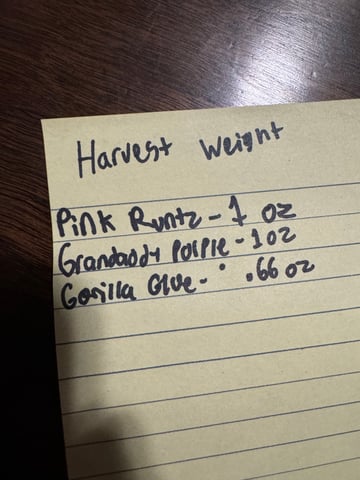 Harvest Weight
Pink Runtz - 1 oz
Grandaddy Purple - 1 oz
Gorilla Glue - .66 oz